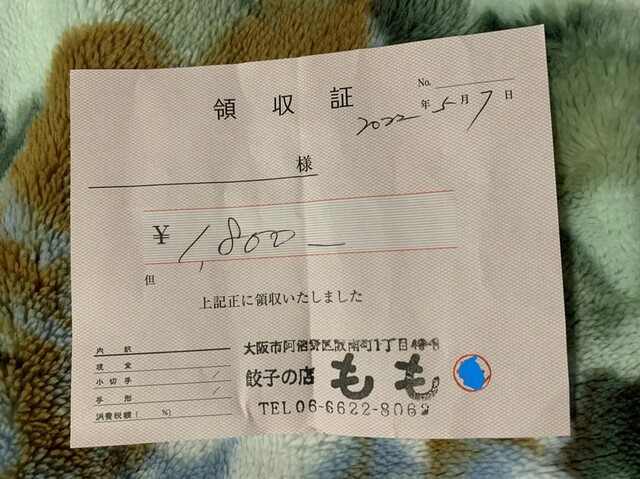 No.
領収証
2022年5月7日
様
¥1,800—
但
上記正に領収いたしました
内訳
現金
小切手
手形
消費税額( %)
大阪市阿倍野区阪南町1丁目
餃子の店 もも
TEL06-6622-8062